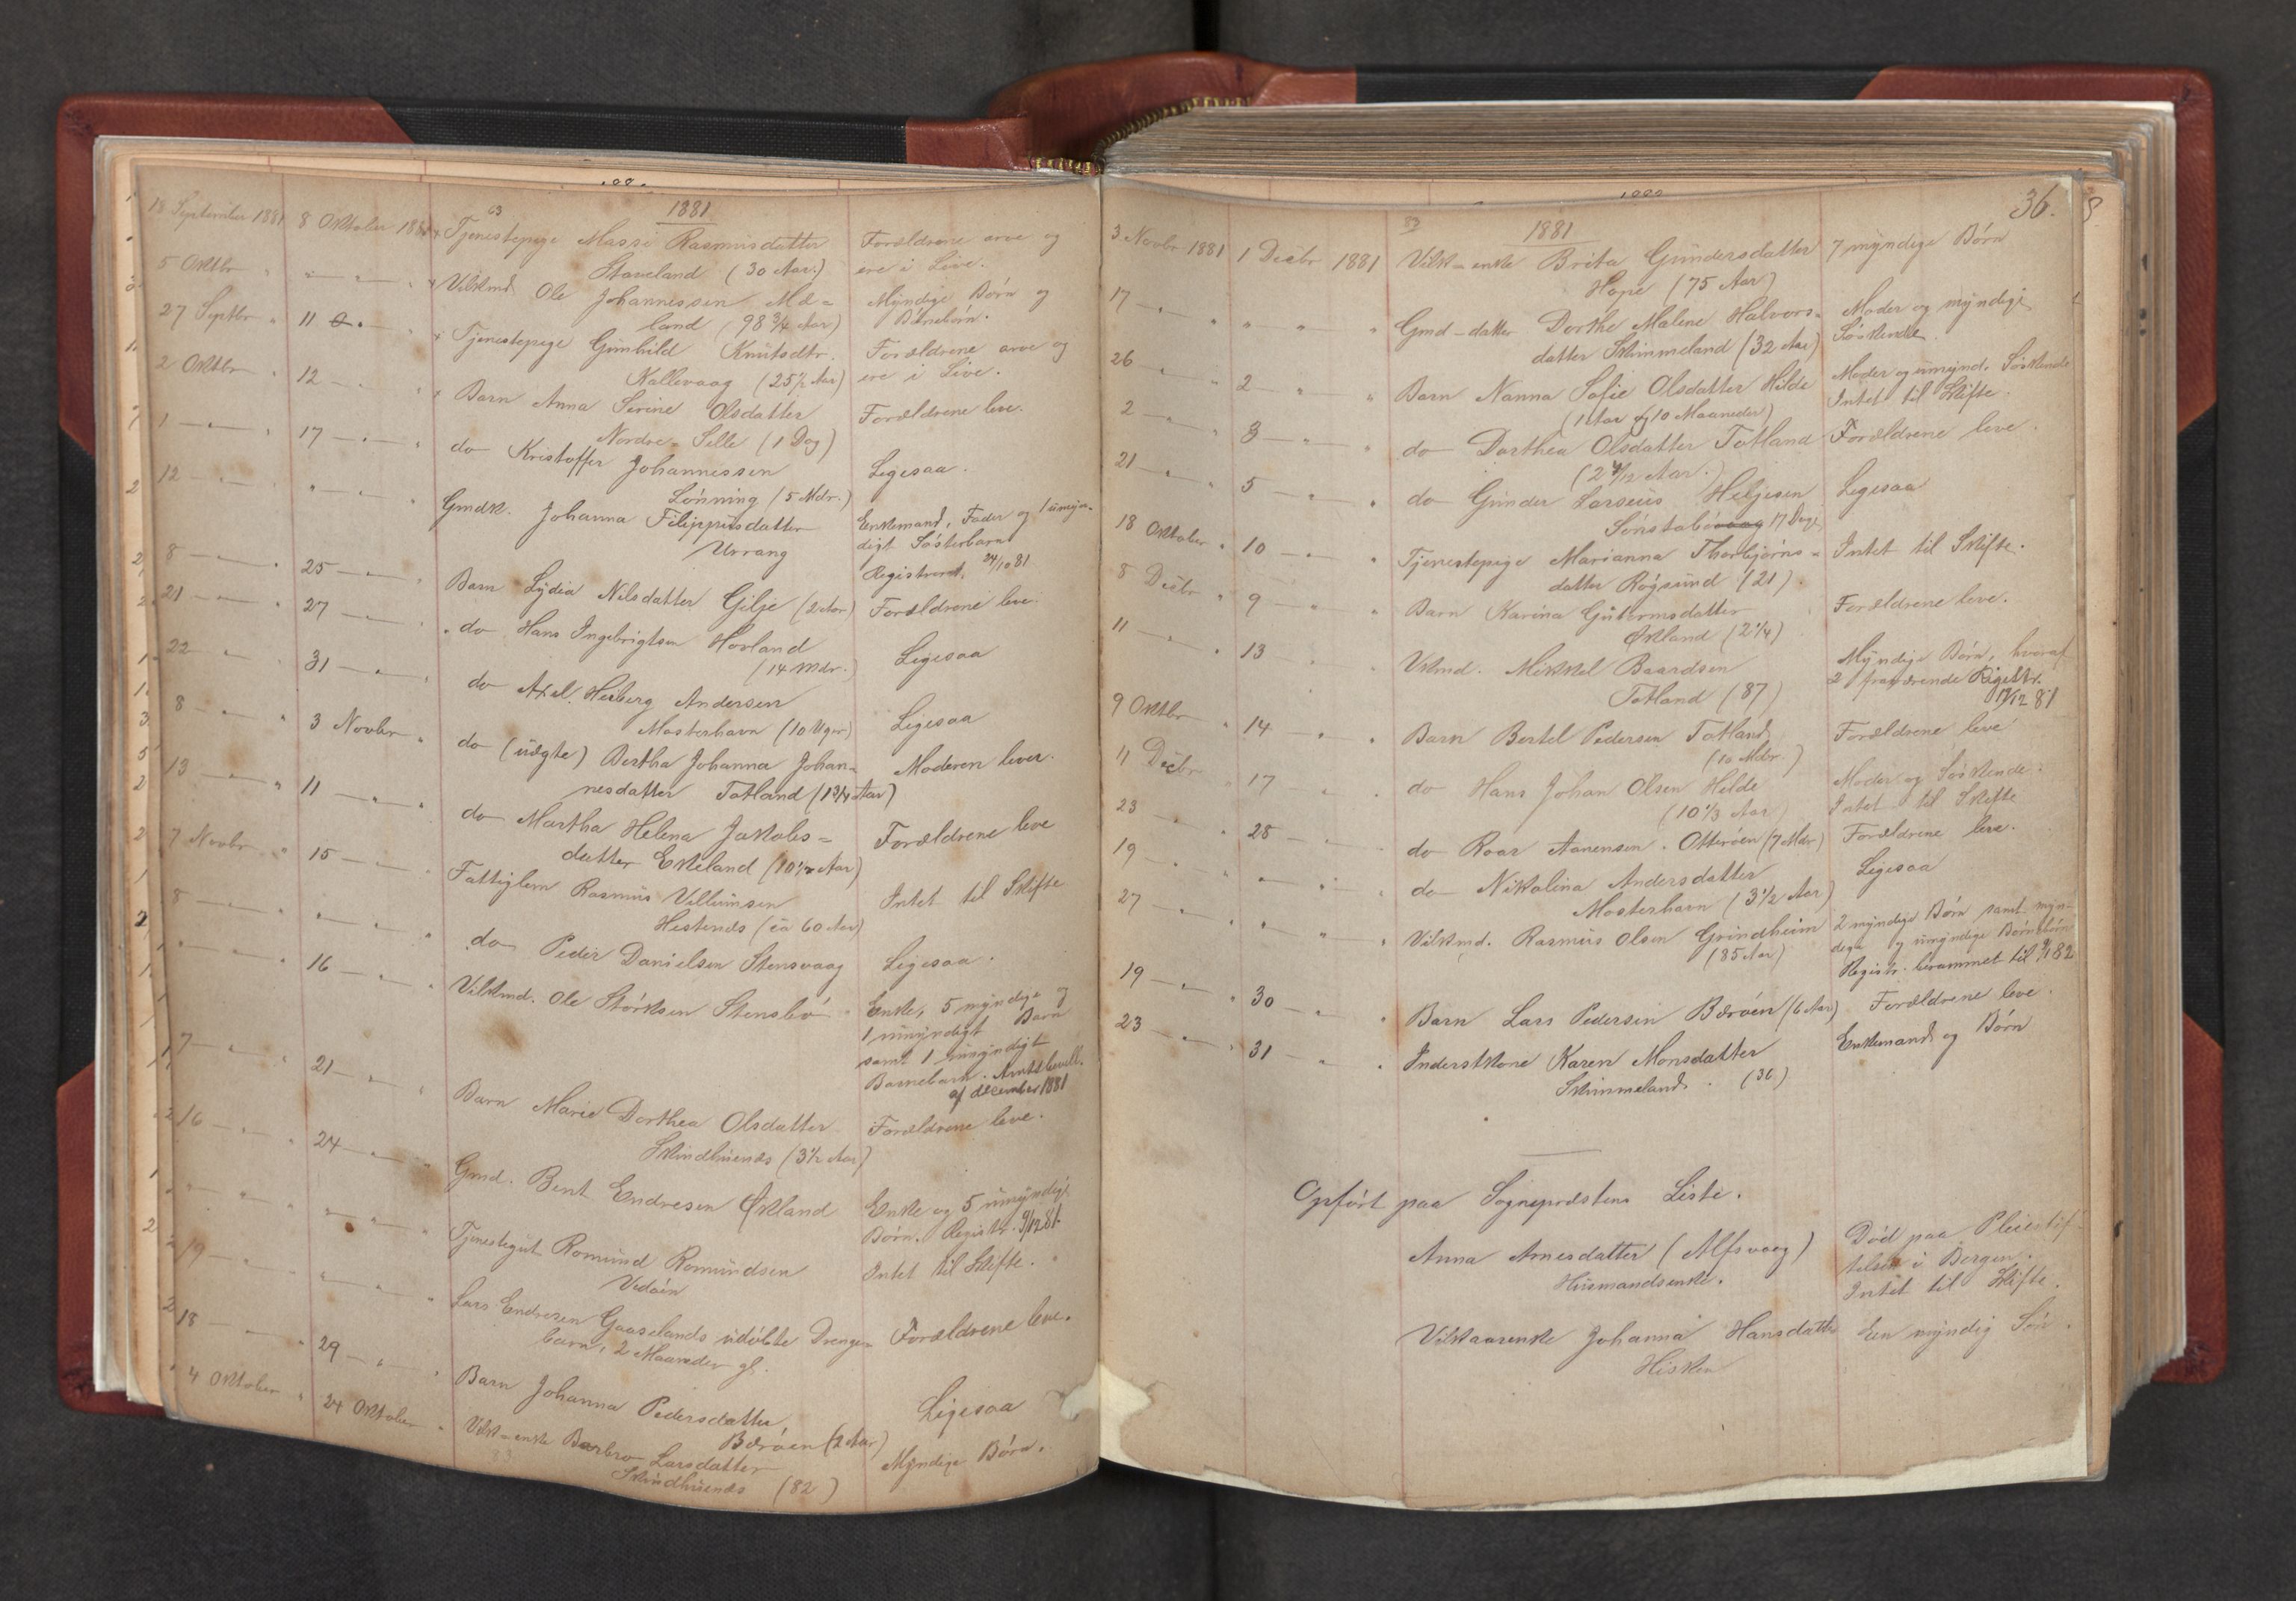 1881
63
18 September 1881 8 Oktober 1881 Tjenestepige Massi Rasmusdatter Forældrene arve og
Staveland (30 Aar.) ere i Live.
5 Oktbr " " — " — " Vilkmd Ole Johannessen Mæ= Myndige Børn og
land (98 3/4 Aar) Børnebørn.
27 Septbr " 11 — " — " Tjenestepige Gunhild Knutsdtr. Forældrene arve og
Kallevaag (25 1/2 Aar) ere i Live.
2 Oktbr " 12 — " — " Barn Anna Serine Olsdatter Forældrene leve.
Nordre-Selle (1 Dag)
1 — " — " 17 — " — " do Kristoffer Johannessen Ligesaa.
Lönning (5 Mdr.)
12 — " — " " — " — " Gmdk. Johanna Filippusdatter Enkemand, Fader og 1 umyn-
Urrang digt Søsterbarn
Registreret 24/10 81
8 — " — " 25 — " — " Barn Lydia Nilsdatter Gilje (2 Aar) Forældrene leve.
21 — " — " 27 — " — " do Hans Ingebrigtsen Hovland Ligesaa
(14 Mdr.)
22 — " — " 31 — " — " do Axel Heiberg Andersen Ligesaa
Mosterhavn (10 Uger)
8 — " — " 3 Novbr " do (uægte) Bertha Johanna Johan= Moderen lever.
nesdatter Totland (1 3/4 Aar)
13 — " — " 11 — " — " do Martha Helena Jakobs= Forældrene leve
datter Ekeland (10 1/2 Aar)
7 Novbr " 15 — " — " Fattiglem Rasmus Villumsen Intet til Skifte
Hestenæs (ca 60 Aar)
8 — " — " " — " — " do Peder Danielsen Stensvaag Ligesaa.
" — " — " 16 — " — " Vilkmd. Ole Störksen Stensbö Enke, 5 myndige og
1 umyndigt Barn
samt 1 umyndigt
Barnebarn. Amtsbevill.
af december 1881
17 — " — " 21 — " — " Barn Marie Dorthea Olsdatter Forældrene leve.
Skindhuenæs (3 1/2 Aar)
16 — " — " 24 — " — " Gmd. Bent Endresen Økland Enke og 5 umyndige
Børn. Registr. 9/12 81.
" — " — " " — " — " Tjenestegut Romund Romundsen Intet til Skifte.
Vedöen
19 — " — " " — " — " Lars Endresen Gaaselands udöbte Drenge= Forældrene leve.
barn, 2 Maaneder gl.
18 — " — " 29 — " — " Barn Johanna Pedersdatter Ligesaa
Bæröen (2 Aar)
4 Oktober " 24 Oktober " Vilk-enke Barbro Larsdatter Myndige Børn.
83 Skindhuenæs (82)
36.
83 1881
3 Novbr 1881 1 Decbr 1881 Vilk-enke Brita Gundersdatter 7 myndige Børn
Hope (75 Aar)
17 — " — " " — " — " Gmd-datter Dorthe Malene Halvors= Moder og myndige
datter Skimmeland (32 Aar) Söskende.
26 — " — " 2 — " — " Barn Nanna Sofie Olsdatter Hilde Moder og umynd. Söskende
(1 Aar og 10 Maaneder) Intet til Skifte.
2 — " — " 3 — " — " do Dorthea Olsdatter Totland Forældrene leve.
(2 4/12 Aar.)
21 — " — " 5 — " — " do Gunder Larseus Heljesen Ligesaa
Sönstabö 17 Dage
18 Oktober " 10 — " — " Tjenestepige Marianna Thorbjörns= Intet til Skifte.
datter Rögsund (21)
8 Decbr " 9 — " — " Barn Karina Gutormsdatter Forældrene leve.
Økland (2 1/4)
11 — " — " 13 — " — " Vilkmd. Mikkel Baardsen Myndige Børn, hvoraf
Totland (87) 2 fraværende Registr.
17/12 81
9 Oktbr " 14 — " — " Barn Bertel Pedersen Totland Forældrene leve
(10 Mdr.)
11 Decbr " 17 — " — " do Hans Johan Olsen Hilde Moder og Söskende.
(10 1/3 Aar) Intet til Skifte
23 — " — " 28 — " — " do Roar Aanensen Otteröen (7 Mdr) Forældrene leve.
19 — " — " " — " — " do Nikolina Andersdatter Ligesaa
Mosterhavn (3 1/2 Aar)
27 — " — " " — " — " Vilkmd. Rasmus Olsen Grindheim 2 myndige Børn samt myn-
(85 Aar) dige og umyndige Børnebörn
Registr. berammet til 82
19 — " — " 30 — " — " Barn Lars Pedersen Bæröen (6 Aar) Forældrene leve.
23 — " — " 31 — " — " Inderstkone Karen Monsdatter Enkemand og Børn
Skimmeland. (36)
Opfört paa Sognepræstens Liste.
Anna Arnesdatter (Alfsvaag) Död paa Pleiestif-
Husmandsenke. telsen i Bergen.
Intet til Skifte.
Vilkaarsenke Johanna Hansdatter Een myndig Sön.
Hisken